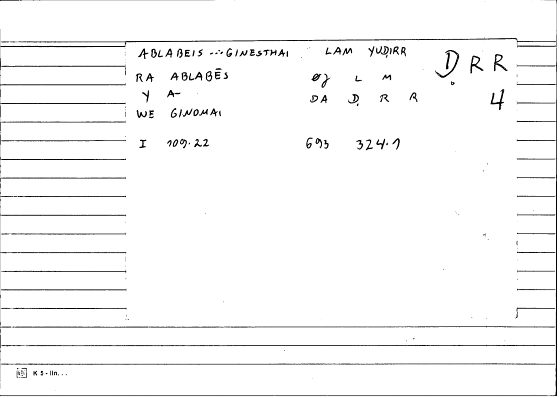 ABLABEIS ... GINESTHAI LAM YUḌIRR
ḌRR
RA ABLABĒS L M
Y A- DA Ḍ R R
4
WE GINOMAI
I 109.22 693 324.1
K 5 - lin...